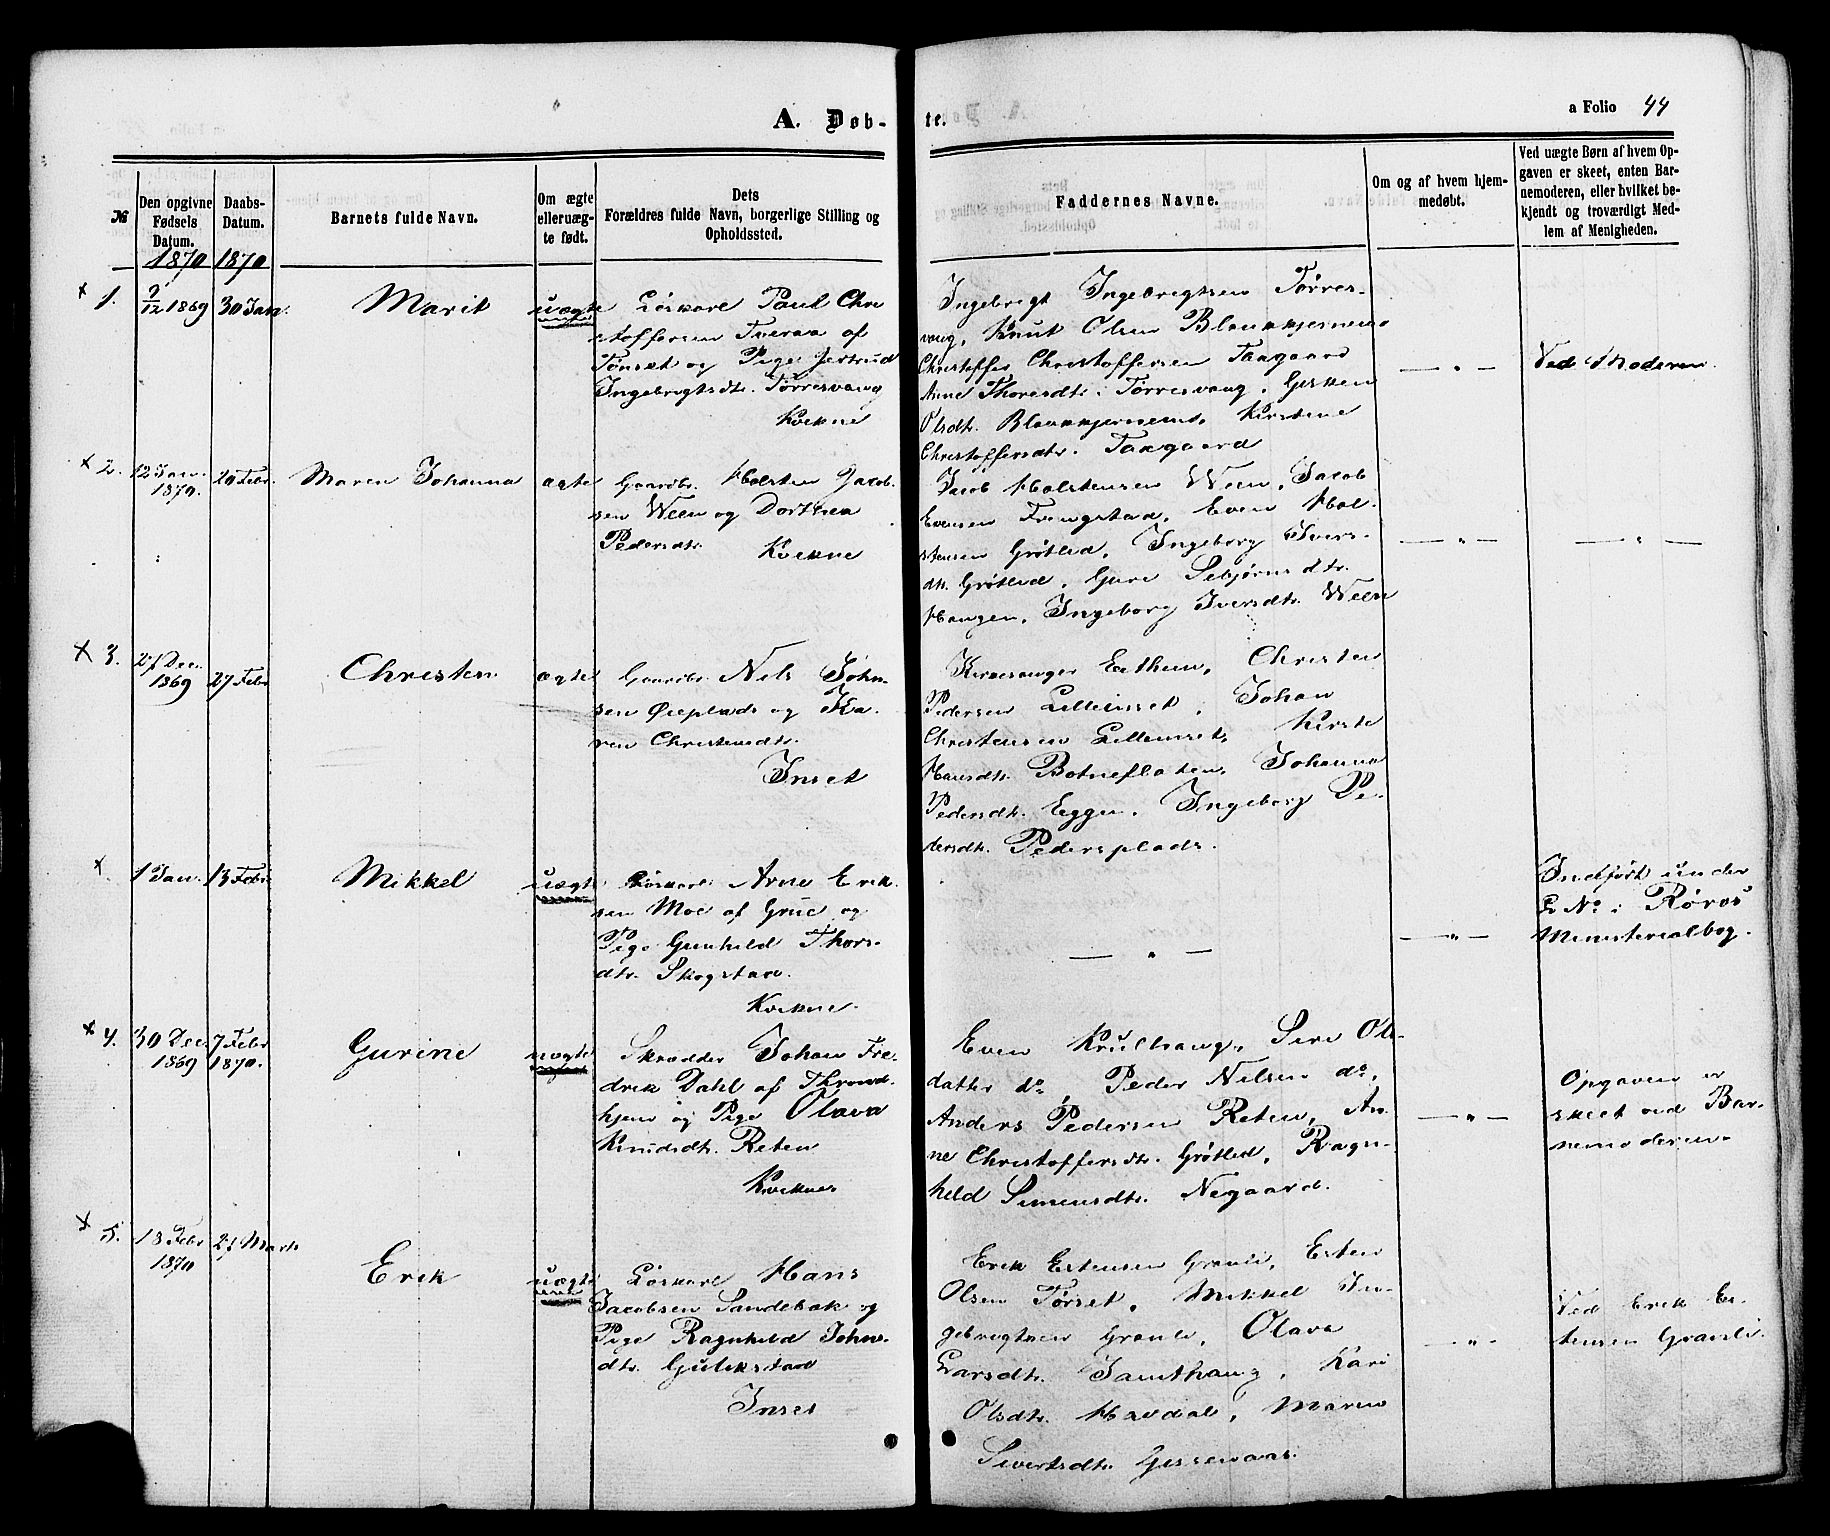 A. Døb-
te.
a Folio 44
№
Den opgivne
Fødsels
Datum.
Daabs-
Datum.
Barnets fulde Navn.
Om ægte
eller uæg-
te født.
Dets
Forældres fulde Navn, borgerlige Stilling og
Opholdssted.
Faddernes Navne.
Om og af hvem hjem-
medøbt.
Ved uægte Børn af hvem Op-
gaven er skeet, enten Bar-
nemoderen, eller hvilket be-
kjendt og troværdigt Med-
lem af Menigheden.
1870 1870
× 1.
9/12 1869
30 Jan.
Marit
uægte
Løskarl Paul Chri
stoffersen Tveraa af
Tønset og Pige Jertrud
Ingebrigtsdtr. Tørresvang
Kvikne
Ingebrigt Ingebrigtsen Tørres-
vang, Knut Olsen
Christoffer Christoffersen Taagaard
Anne Thoresdtr. Tørresvang,
Olsdtr. Kirstine
Christoffersdtr. Taagaard
— „ —
Ved Moderen.
× 2.
12 Jan.
1870.
20 Febr.
Maren Johanna
ægte
Gaardbr. Halsten Jacob-
sen Ween og Dorthea
Pedersdtr.
Kvikne
Jacob Halstensen Ween, Jacob
Evensen Frengstad, Even Hal-
stensen Grøtlid, Ingeborg Ivers-
dtr. Grøtlid, Guri Sebjørnsdtr.
Haugen, Ingeborg Iversdtr. Ween
— „ —
— „ —
× 3.
27 Dec.
1869
27 Febr
Christen
ægte
Gaardbr. Nils John-
sen Øieplads og Ka-
ren Christensdtr.
Inset
Kirkesanger Christen
Pedersen Lilleinset, Johan
Christensen Lilleinset, Kirsti
Hansdtr. Botneflaten, Johanna
Pedersdtr. Eggen, Ingeborg Pe-
dersdtr. Pedersplads.
×.
1 Jan.
13 Febr.
Mikkel
uægte
Løskarl Arne Erik-
sen Moe af Grue og
Pige Gunhild Thors-
dtr. Skogstad.
Kvikne.
— „ —
— „ —
Indført under
No i Røros
Ministerialbog.
× 4.
30 Dec.
1869
7 Febr
1870.
Gurine
uægte
Skrædder Johan Fre-
drik Dahl af Thrond-
hjem og Pige Olava
Knudsdtr. Reten
Kvikne
Even Krulhaug, Siri Ols-
datter do, Peder Nilsen do,
Anders Pedersen Reten, An-
ne Christoffersdtr. Grøtlid, Ragn-
hild Simensdtr. Negaard.
— „ —
Opgaven er
skeet ved Bar-
nemoderen.
× 5.
18 Febr
1870
27 Marts
Erik
uægte
Løskarl Hans
Jacobsen Sandebak og
Pige Ragnhild Johns-
dtr. Gulikstad
Inset
Erik Estensen Granli, Esten
Olsen Tørset, Mikkel In-
gebrigtsen Granli, Olava
Larsdtr. Kari
Olsdtr. Havdal, Maren
Sivertsdtr.
— „ —
Ved Erik Es-
tensen Granli.